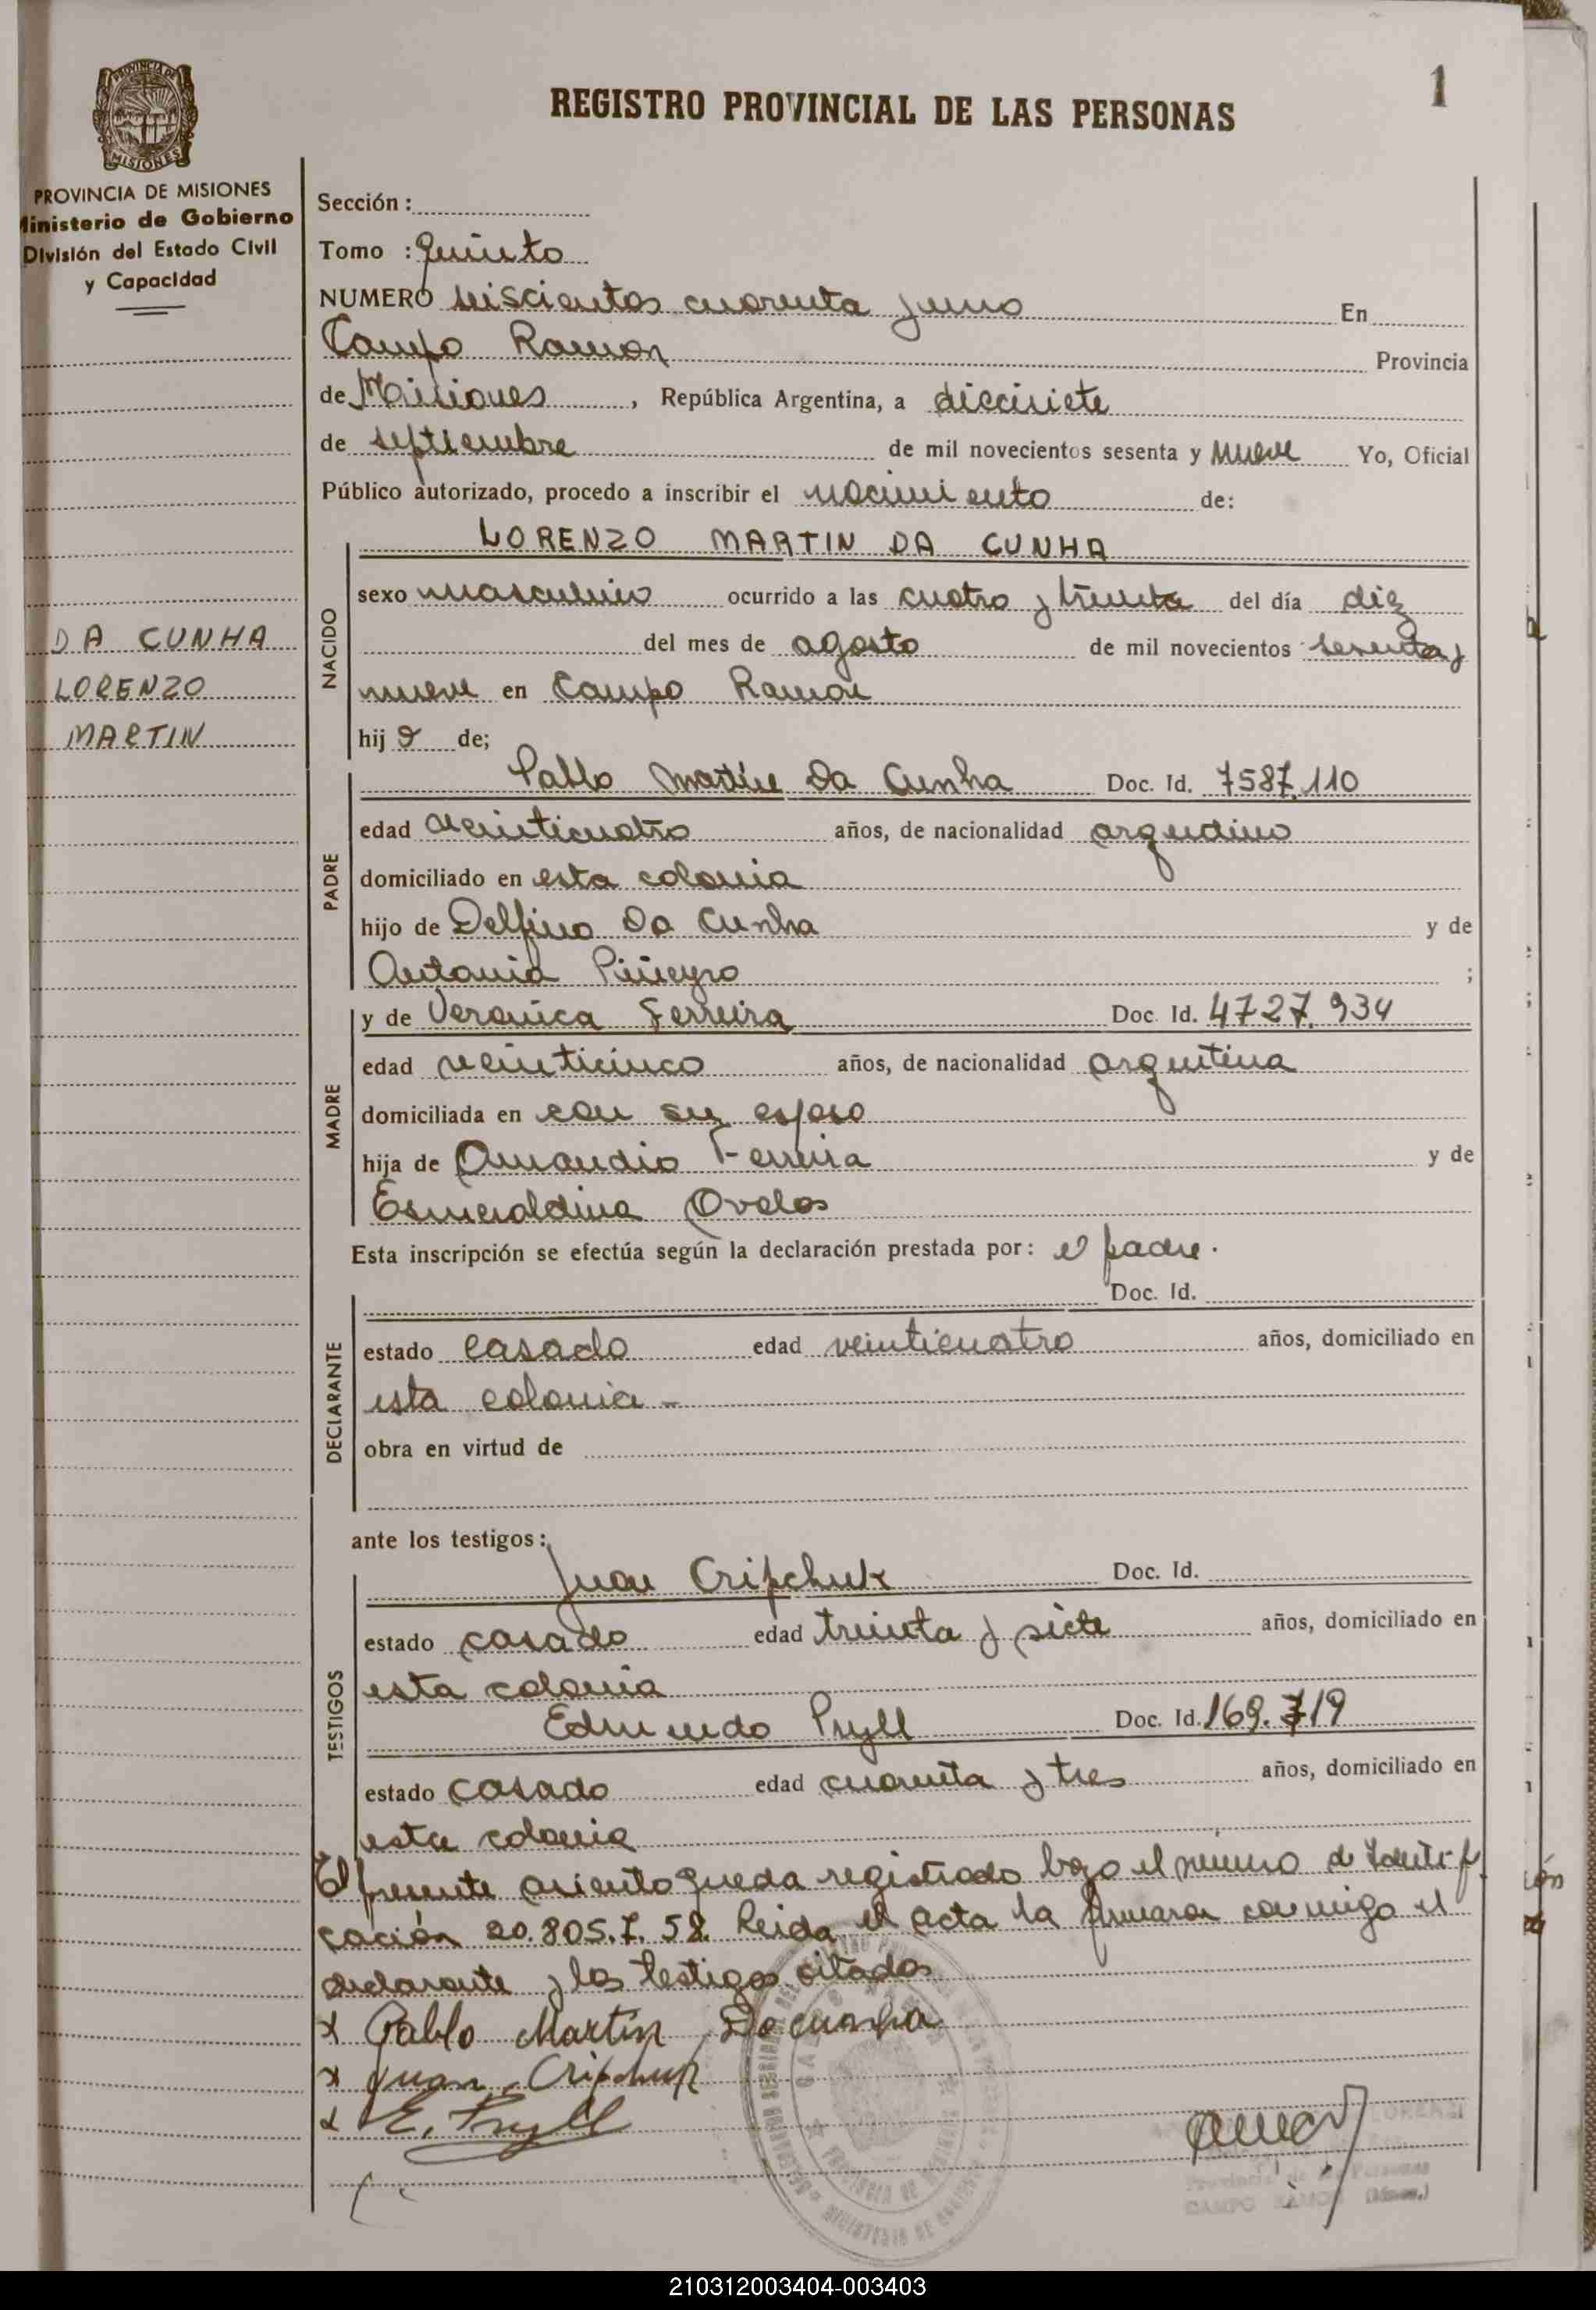 1
REGISTRO PROVINCIAL DE LAS PERSONAS
PROVINCIA DE MISIONES
PROVINCIA DE MISIONES
Ministerio de Gobierno
División del Estado Civil
y Capacidad
DA CUNHA
LORENZO
MARTIN
Sección :
Tomo : quinto
NUMERO seiscientos cuarenta y uno En
Campo Ramon Provincia
de Misiones, República Argentina, a diecisiete
de septiembre de mil novecientos sesenta y nueve Yo, Oficial
Público autorizado, procedo a inscribir el nacimiento de:
NACIDO
LORENZO MARTIN DA CUNHA
sexo masculino ocurrido a las cuatro y treinta del día diez
del mes de agosto de mil novecientos sesenta y
nueve en Campo Ramon
hij o de;
PADRE
Pablo Martin Da Cunha Doc. Id. 7587.110
edad veinticuatro años, de nacionalidad argentino
domiciliado en esta colonia
hijo de Delfino Da Cunha y de
Antonia Piñeyro ;
MADRE
y de Veronica Ferreira Doc. Id. 4727.934
edad veinticinco años, de nacionalidad argentina
domiciliada en con su esposo
hija de Amandio Ferreira y de
Esmeraldina Ovelos
Esta inscripción se efectúa según la declaración prestada por: el padre.
DECLARANTE
Doc. Id.
estado casado edad veinticuatro años, domiciliado en
esta colonia -
obra en virtud de
ante los testigos:
TESTIGOS
Juan Cripchuk Doc. Id.
estado casado edad treinta y siete años, domiciliado en
esta colonia
Edmundo Pryll Doc. Id. 169.719
estado casado edad cuarenta y tres años, domiciliado en
esta colonia
El presente asiento queda registrado bajo el numero de Identifi
cación 20.805.7.58. Leida el acta la firmaron conmigo el
declarante y los testigos citados
x Pablo Martin Dacunha
x Juan Cripchuk
x E. Pryll
Provincial de las Personas
CAMPO RAMON (Mnes.)
210312003404-003403